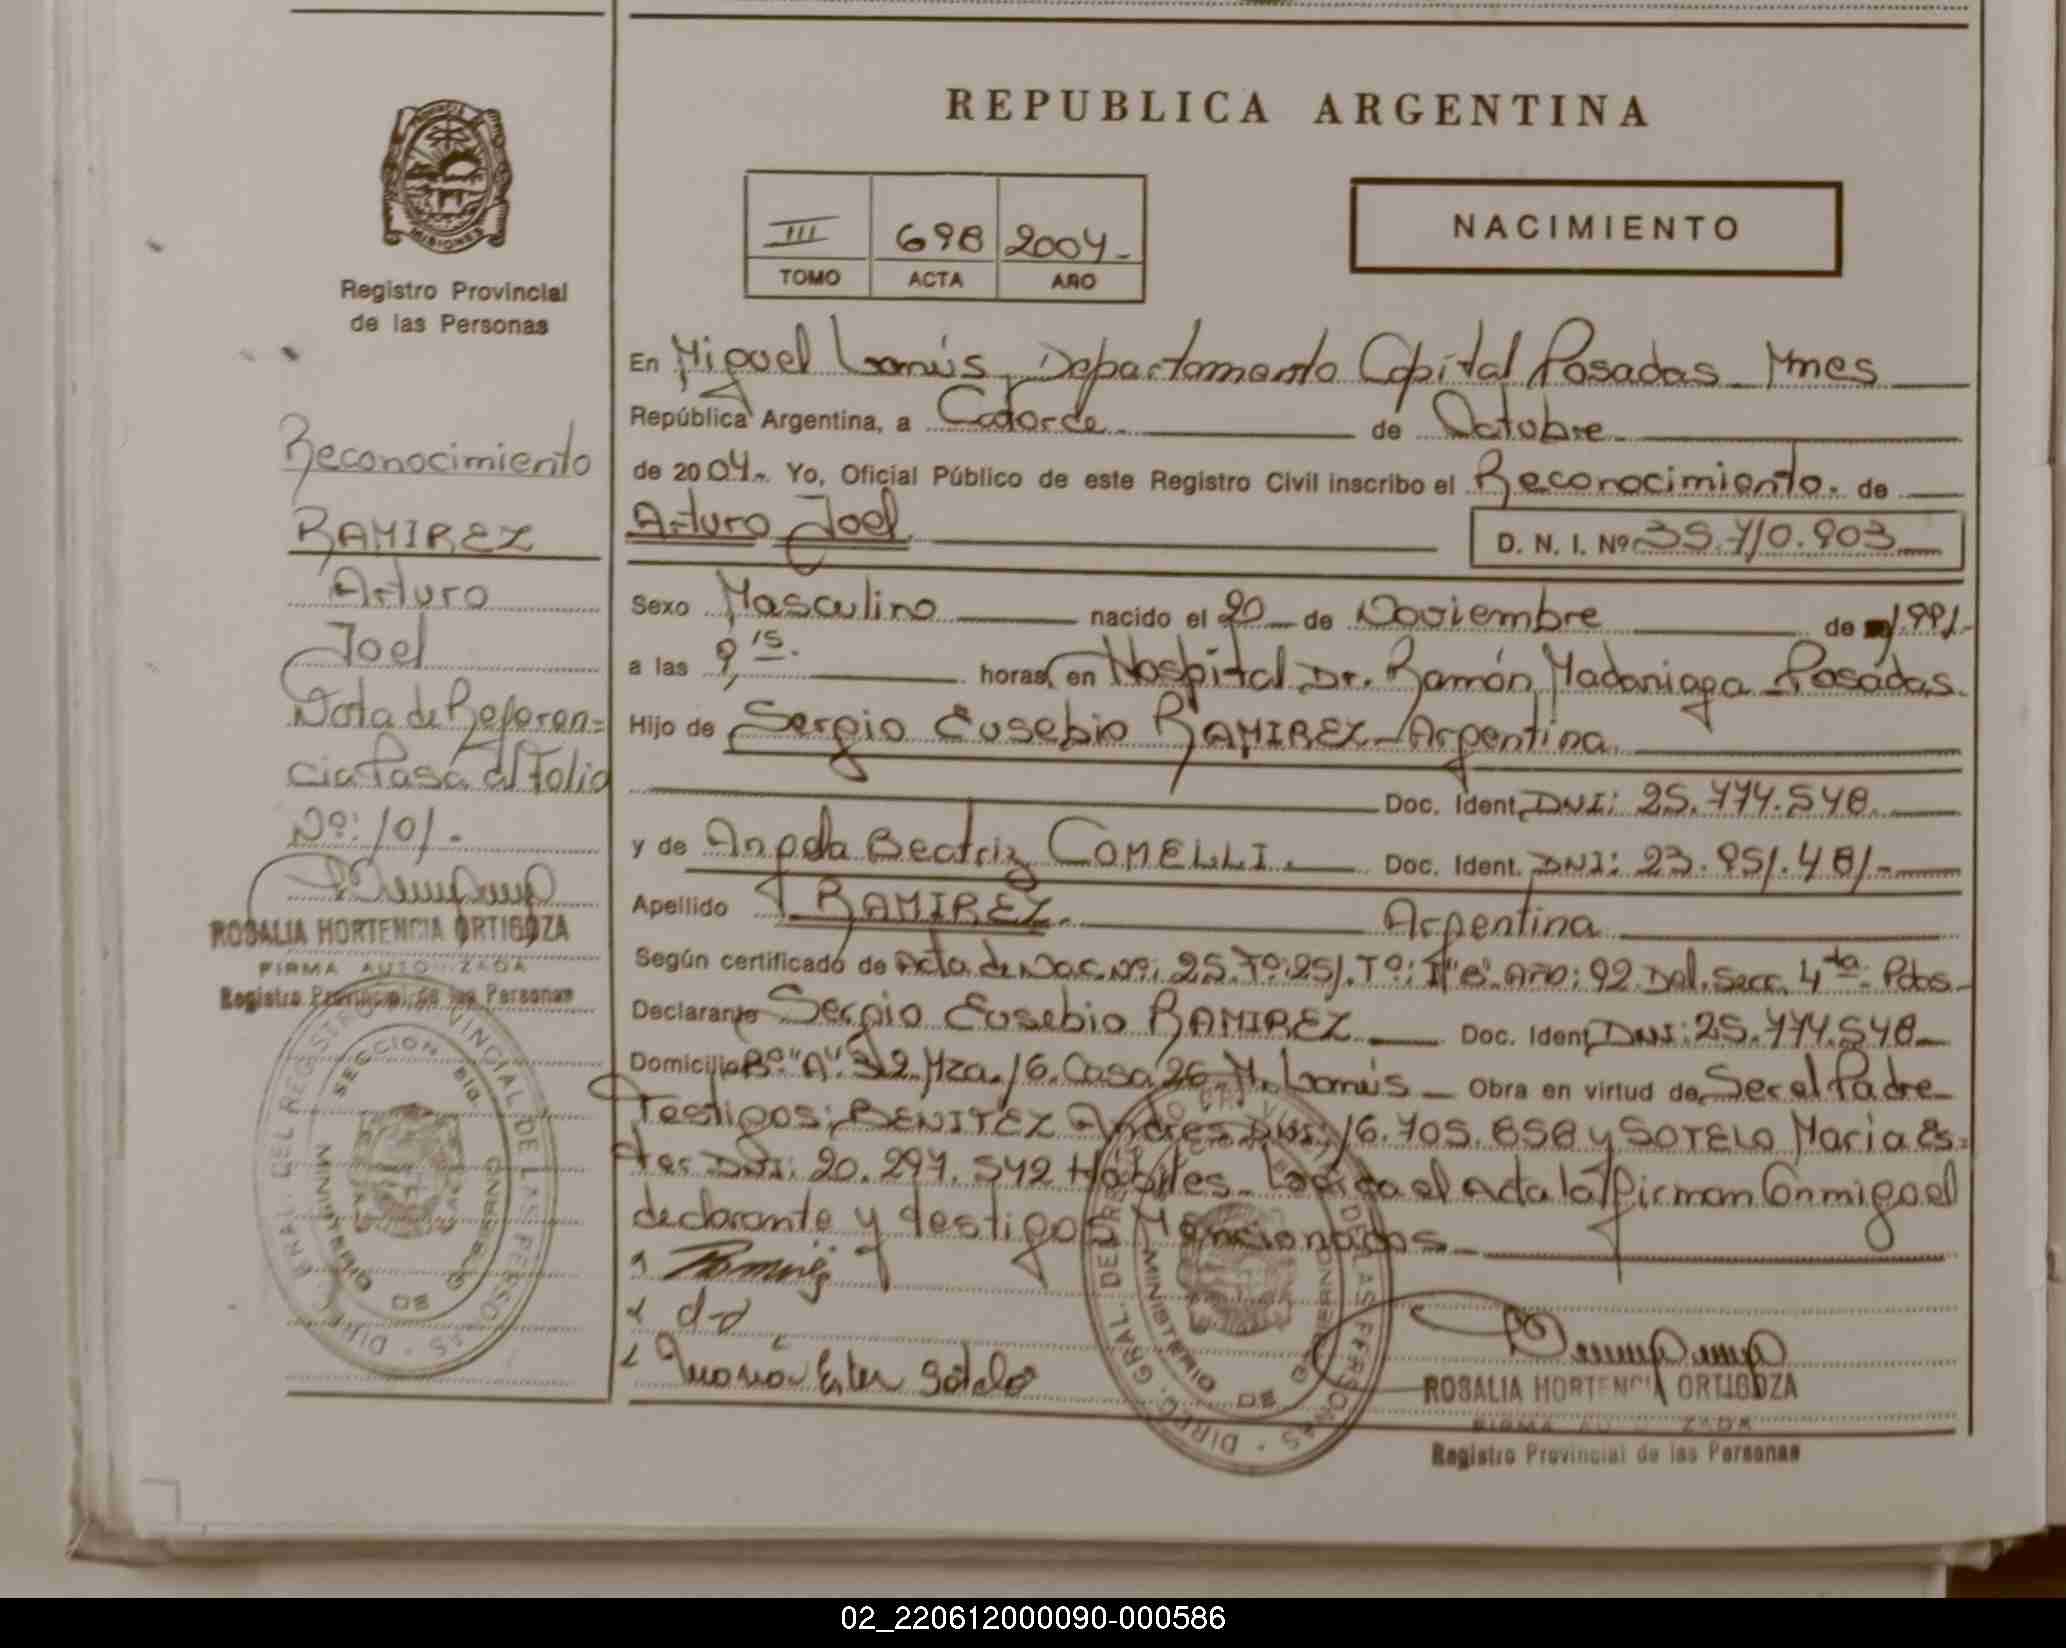 REPUBLICA ARGENTINA
MISIONES
Registro Provincial
de las Personas
III 698 2004-
TOMO ACTA AÑO
NACIMIENTO
En Miguel Lanús, Departamento Capital Posadas Mnes
República Argentina, a Catorce de Octubre
de 2004. Yo, Oficial Público de este Registro Civil inscribo el Reconocimiento. de
Arturo Joel D. N. I. Nº 35.710.903
Sexo Masculino nacido el 20 de Noviembre de 1.991.-
a las 9,15. horas, en Hospital Dr. Ramón Madariaga Posadas.
Hijo de Sergio Eusebio RAMIREZ - Argentina
Doc. Ident. DNI: 25.774.548.
y de Angela Beatriz COMELLI. Doc. Ident. DNI: 23.951.481.-
Apellido RAMIREZ. Argentina
Según certificado de Acta de Nac. Nº: 25. Fº: 251. Tº: I "B". Año: 92. Del. Secc. 4ta. Pdas.
Declarante Sergio Eusebio RAMIREZ Doc. Ident. DNI: 25.774.548.
Domicilio Bº "A" 3 2. Mza. 16. Casa 26. M. Lanús Obra en virtud de Ser el Padre
Testigos: BENITEZ Andres DNI: 16.705.858 y SOTELO Maria Es=
ter DNI: 20.297.542 Hábiles. el Acta la firman Conmigo el
declarante y testigos Mencionados.
Ramirez
Maria Ester Sotelo
ROSALIA HORTENCIA ORTIGOZA
FIRMA AUTORIZADA
Registro Provincial de las Personas
Reconocimiento
RAMIREZ
Arturo
Joel
Nota de Referen=
cia Pasa al Folio
Nº: 101.
ROSALIA HORTENCIA ORTIGOZA
FIRMA AUTORIZADA
Registro Provincial de las Personas
DIREC. GRAL. DEL REGISTRO PROVINCIAL DE LAS PERSONAS
MINISTERIO DE GOBIERNO
SECCION
DIREC. GRAL. DEL REGISTRO PROVINCIAL DE LAS PERSONAS
MINISTERIO DE GOBIERNO
02_220612000090-000586